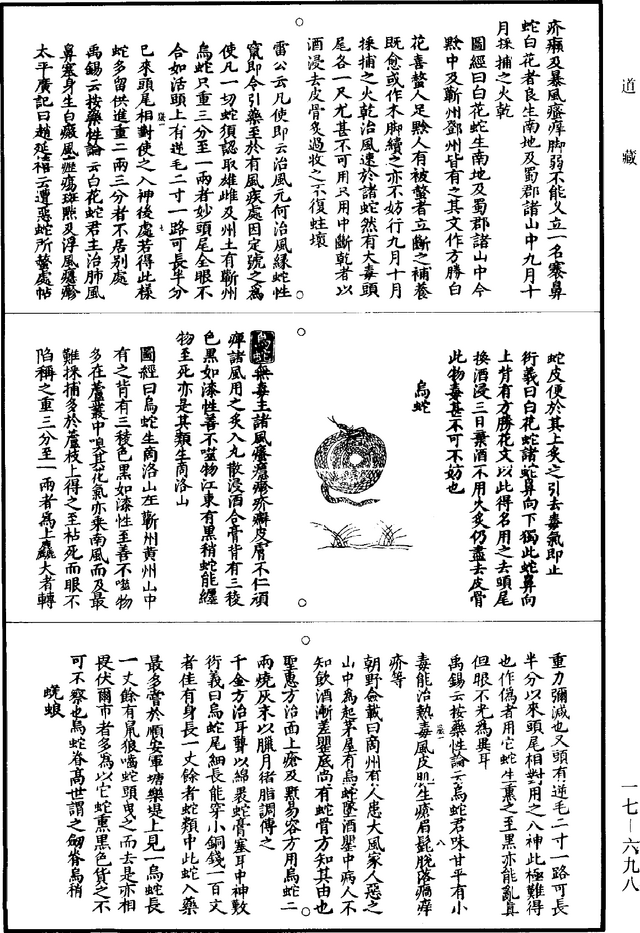 道藏
疥癩及暴風瘙痒脚弱不能久立一名褰鼻
蛇白花者良生南地及蜀郡諸山中九月十
月採捕之火乾
圖經曰白花蛇生南地及蜀郡諸山中今
黔中及蘄州鄧州皆有之其文作方勝白
花喜螫人足黔人有被螫者立斷之補養
既愈或作木脚續之亦不妨行九月十月
採捕之火乾治風速於諸蛇然有大毒頭
尾各一尺尤甚不可用只用中斷乾者以
酒浸去皮骨炙過收之不復蛀壞
雷公云凡使即云治風元何治風緣蛇性
竄即令引藥至於有風疾處因定號之爲
使凡一切蛇須認取雄雌及州土有蘄州
烏蛇只重三分至一兩者妙頭尾全眼不
合如活頭上有逆毛二寸一路可長半分
已來頭尾相對使之入神後處若得此樣
蛇多留供進重二兩三分者不居別處
禹錫云按藥性論云白花蛇君主治肺風
鼻塞身生白癜風癧瘍斑點及浮風癮疹
太平廣記曰趙延禧云遭惡蛇所螫處帖
蛇皮便於其上炙之引去毒氣即止
衍義曰白花蛇諸蛇鼻向下獨此蛇鼻向
上背有方勝花文以此得名用之去頭尾
換酒浸三日棄酒不用火炙仍盡去皮骨
此物毒甚不可不妨也
烏蛇
烏蛇無毒主諸風瘙癮疹疥癬皮膚不仁頑
痺諸風用之炙入丸散浸酒合膏背有三稜
色黑如漆性善不噬物江東有黑稍蛇能纏
物至死亦是其類生商洛山
圖經曰烏蛇生商洛山在蘄州黃州山中
有之背有三稜色黑如漆性至善不噬物
多在蘆叢中嗅其花氣亦乘南風而及最
難採捕多於蘆枝上得之至枯死而眼不
陷稱之重三分至一兩者爲上麤大者轉
重力彌減也又頭有逆毛二寸一路可長
半分以來頭尾相對用之入神此極難得
也作僞者用它蛇生熏之至黑亦能亂真
但眼不光爲異耳
禹錫云按藥性論云烏蛇君味甘平有小
毒能治熱毒風皮肌生瘡眉髭脫落瘑痒
疥等
朝野僉載曰商州有人患大風家人惡之
山中爲起茅屋有烏蛇墜酒罌中病人不
知飲酒漸差罌底尚有蛇骨方知其由也
聖惠方治面上瘡及䵟易容方用烏蛇二
兩燒灰末以臘月猪脂調傅之
千金方治耳聾以綿裹蛇膏塞耳中神數
衍義曰烏蛇尾細長能穿小銅錢一百文
者佳有身長一丈餘者蛇類中此蛇入藥
最多嘗於順安軍塘濼堤上見一烏蛇長
一丈餘有鼠狼嚙蛇頭曳之而去是亦相
畏伏爾市者多爲以它蛇熏黑色貨之不
可不察也烏蛇脊高世謂之劒脊烏稍
蜣蜋
一七—六九八